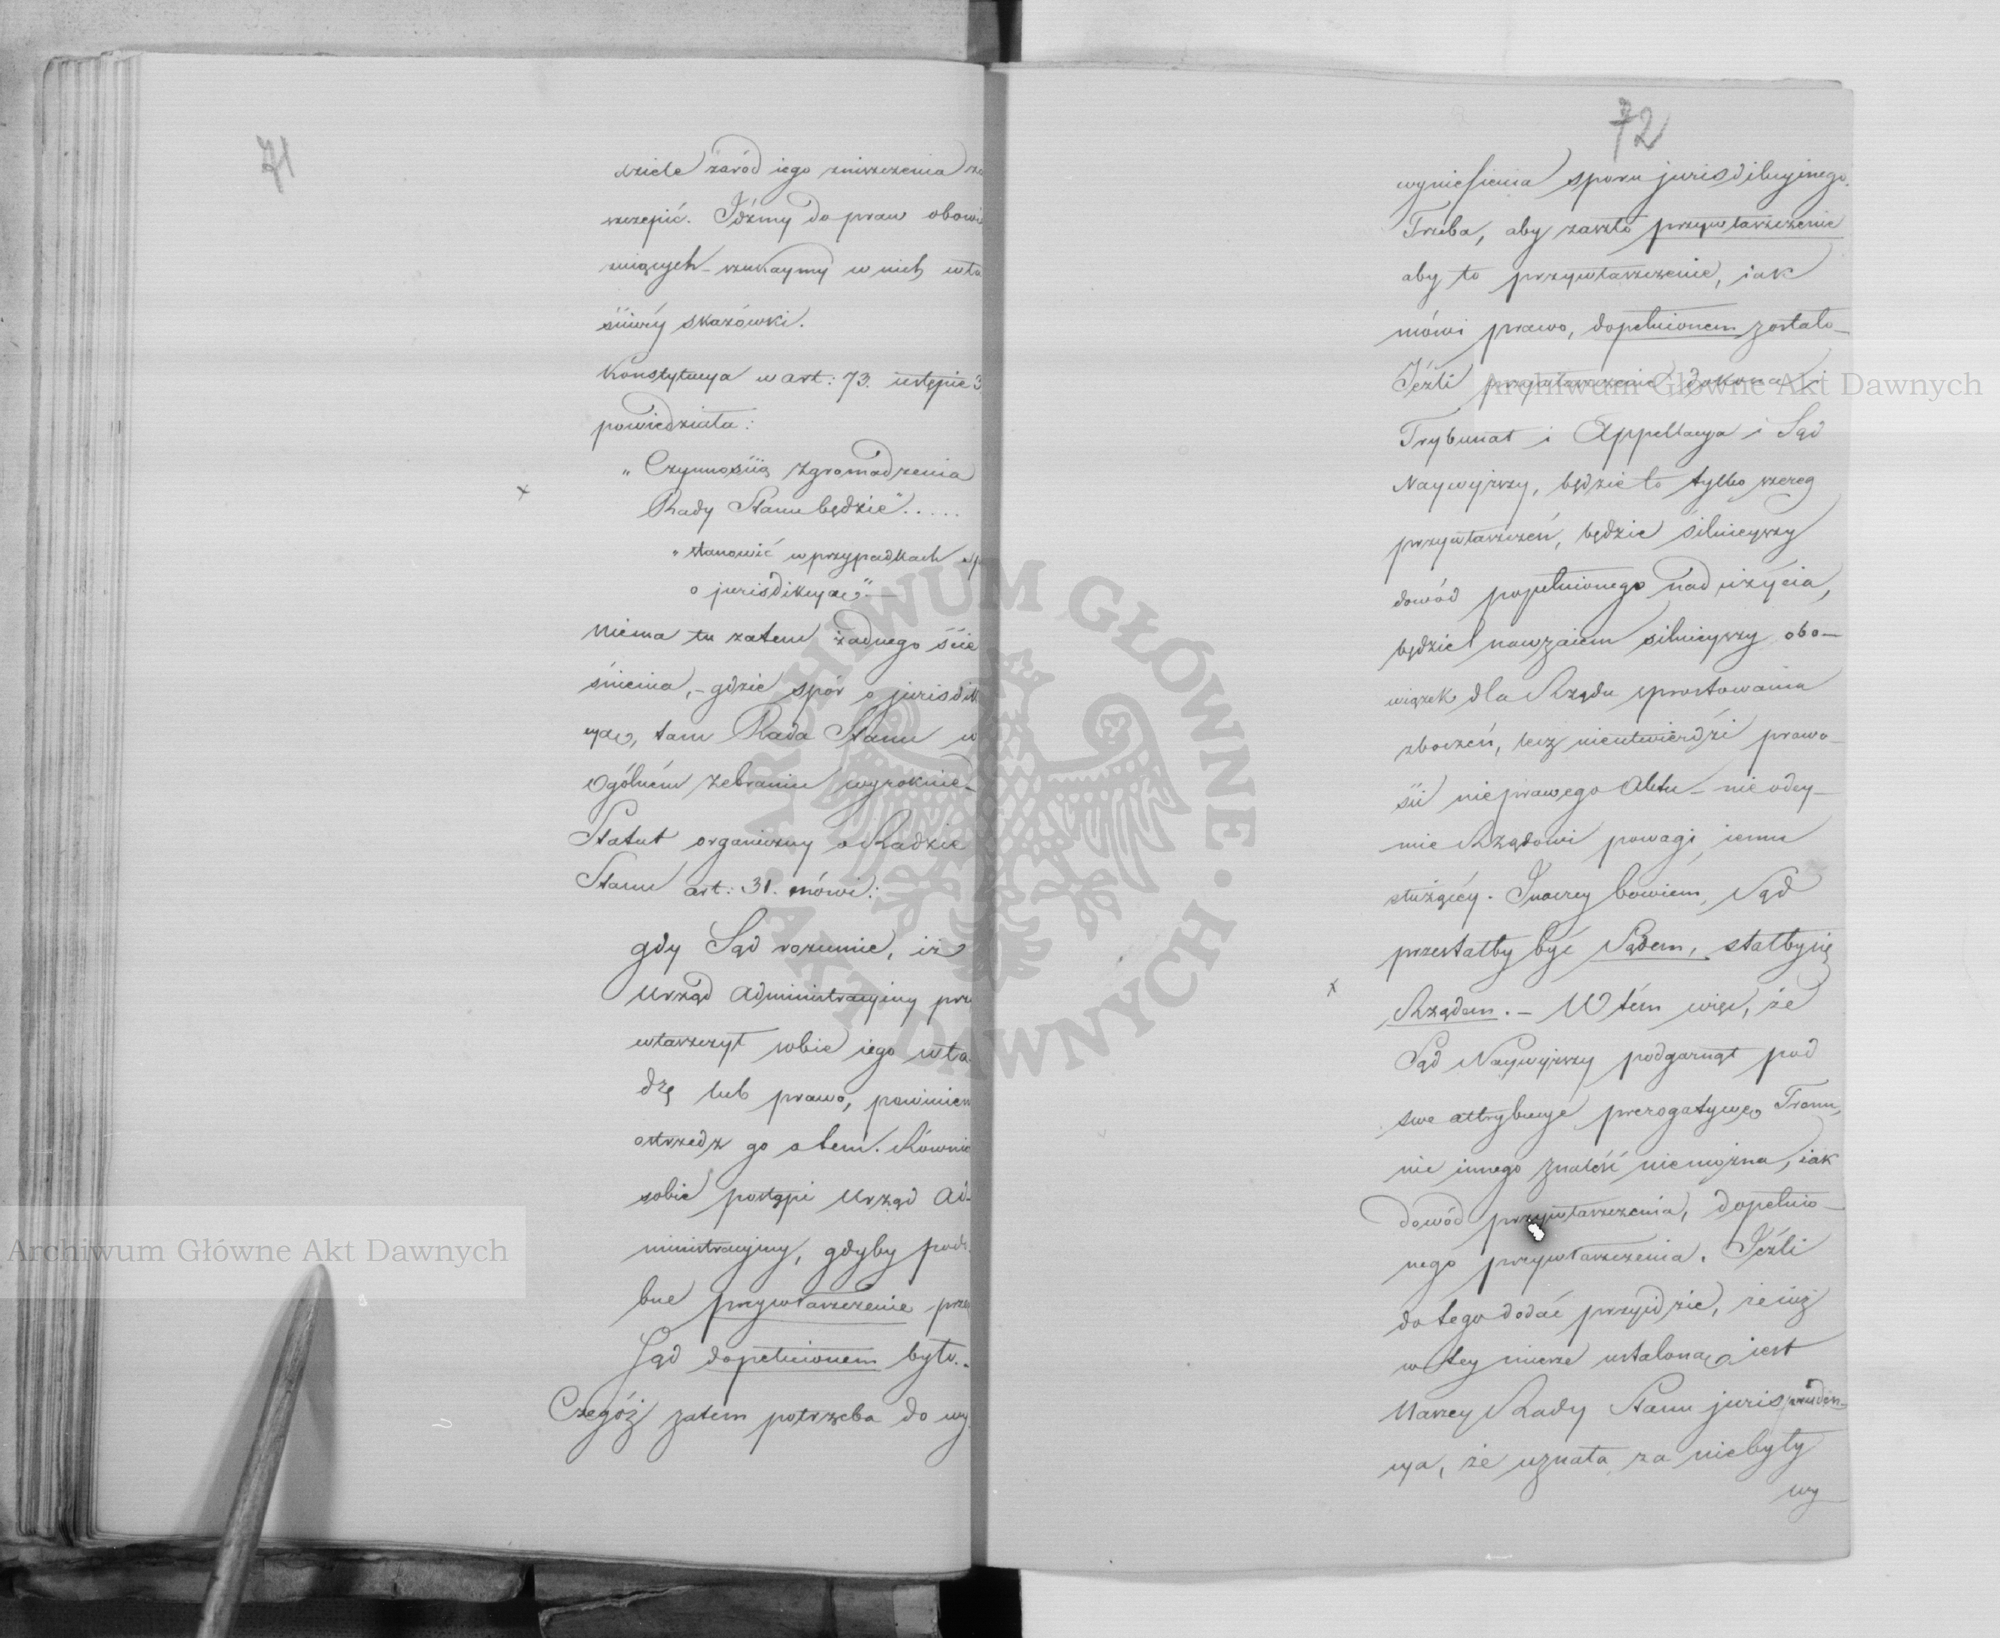 71
dziele zaród iego zniszczenia za
szczepić. Idźmy do praw obowią
zuiących – szukaymy w nich wła
śćiwéy skazówki.
Konstytucya w art: 73. ustępie 3
powiedziała:
„Czynnośćią Zgromadzenia
Rady Stanu będzie".....
„stanowić w przypadkach sp
o jurisdikcyą".–
Niema tu zatem żadnego śćie
śnienia, – gdzie spór o jurisdik
cyą, tam Rada Stanu w
Ogólném Zebraniu wyroknie –
Statut organiczny o Radzie
Stanu art: 31. mówi:
gdy Sąd rozumie, iż
Urząd Administracyjny przy
właszczył sobie iego wła
dzę lub prawo, powinien
ostrzedz go o tem. Równie
sobie postąpi Urząd Ad-
ministracyjny, gdyby podo
bne przywłaszczenie przez
Sąd dopełnionem było. –
Czegóż zatem potrzeba do wy
72
wyniesienia sporu jurisdikcyjnego.
Trzeba, aby zaszło przywłaszczenie
aby to przywłaszczenie, iak
mówi prawo, dopełnionem zostało –
Jeźli przywłaszczenie dokona i
Trybunał i Appellacya i Sąd
Naywyższy, będzie to tylko szereg
przywłaszczeń, będzie silnieyszy
dowód popełnionego nadużycia,
będzie nawzaiem silnieyszy obo–
wiązek dla Rządu sprostowania
zboczeń, lecz nieutwierdzi prawo–
śći nieprawego Aktu – nie odey–
mie Rządowi powagi iemu
służącéy. Inaczey bowiem, Sąd
przestałby być Sądem, stałby się
Rządem. – W tém więc, że
Sąd Naywyższy podgarnął pod
swe attrybucye prerogatywę Tronu,
nic innego znaleść niemożna, iak
dowód przywłaszczenia, dopełnio–
nego przywłaszczenia. Jeźli
do tego dodać przyidzie, że iuż
w tey mierze ustaloną iest
Naszey Rady Stanu jurispruden–
cya, że uznała za niebyły
wy